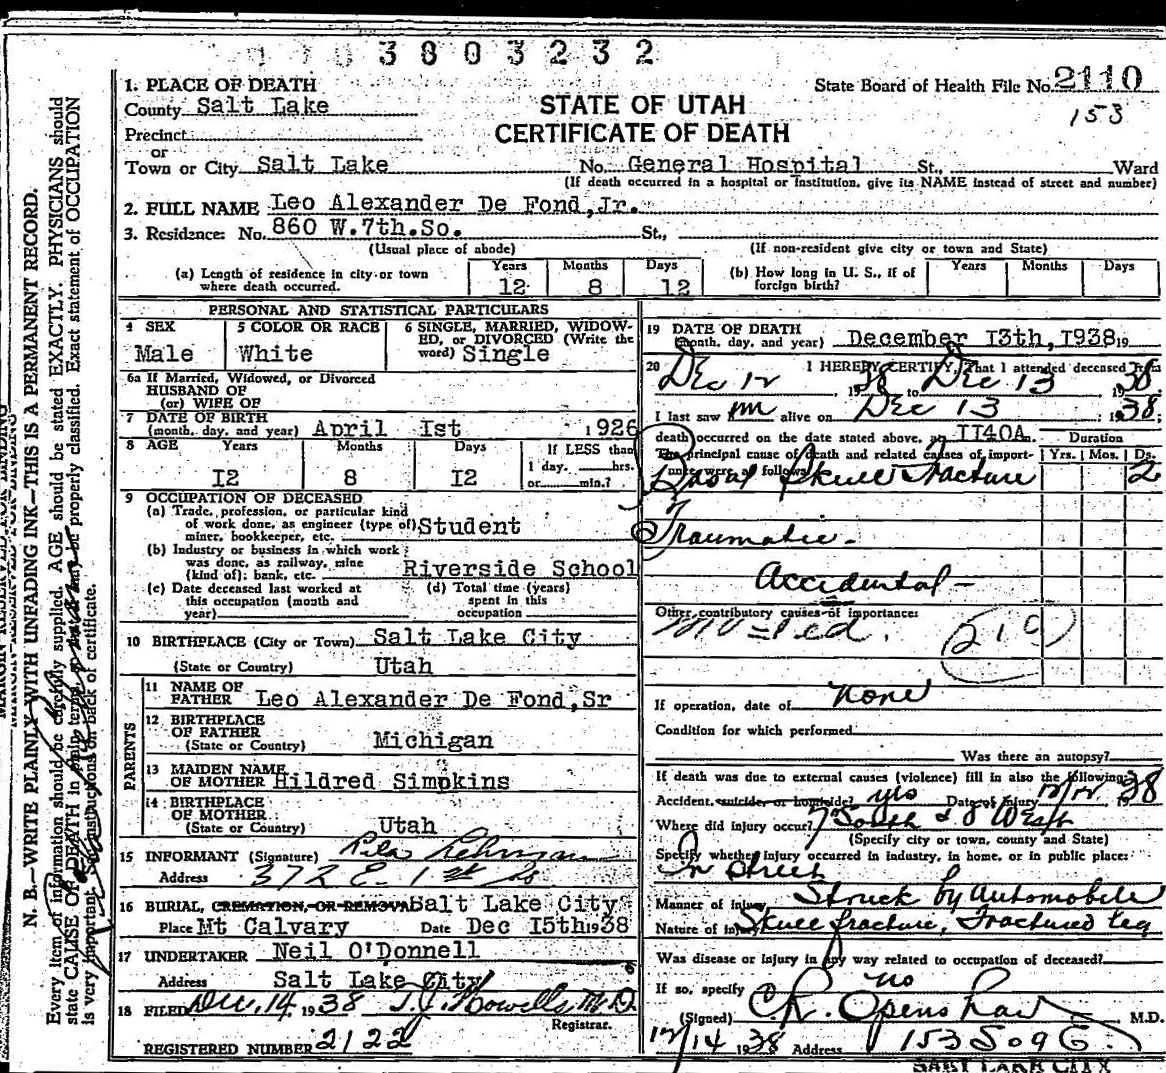 3803232
1. PLACE OF DEATH
County Salt Lake
Precinct
or
Town or City Salt Lake No. General Hospital St., Ward
(If death occurred in a hospital or institution, give its NAME instead of street and number)
State Board of Health File No. 2110
153
STATE OF UTAH
CERTIFICATE OF DEATH
2. FULL NAME Leo Alexander De Fond, Jr.
3. Residence: No. 860 W.7th.So. St.,
(Usual place of abode) (If non-resident give city or town and State)
(a) Length of residence in city or town where death occurred. Years 12 Months 8 Days 12
(b) How long in U. S., if of foreign birth? Years Months Days
PERSONAL AND STATISTICAL PARTICULARS
4 SEX Male
5 COLOR OR RACE White
6 SINGLE, MARRIED, WIDOWED, OR DIVORCED (Write the word) Single
6a If Married, Widowed, or Divorced
HUSBAND OF
(or) WIFE OF
7 DATE OF BIRTH
(month, day, and year) April Ist 1926
8 AGE Years I2 Months 8 Days I2 If LESS than
1 day. hrs.
or min.?
9 OCCUPATION OF DECEASED
(a) Trade, profession, or particular kind
of work done, as engineer (type of)
miner, bookkeeper, etc. Student
(b) Industry or business in which work
was done, as railway, mine
(kind of); bank, etc. Riverside School
(c) Date deceased last worked at
this occupation (month and
year)
(d) Total time (years)
spent in this
occupation
10 BIRTHPLACE (City or Town) Salt Lake City
(State or Country) Utah
PARENTS
11 NAME OF
FATHER Leo Alexander De Fond, Sr
12 BIRTHPLACE
OF FATHER
(State or Country) Michigan
13 MAIDEN NAME
OF MOTHER Hildred Simpkins
14 BIRTHPLACE
OF MOTHER
(State or Country) Utah
15 INFORMANT (Signature)
Address 372 E. 1st So
16 BURIAL, CREMATION, OR REMOVAL Salt Lake City
Place Mt Calvary Date Dec I5th 1938
17 UNDERTAKER Neil O'Donnell
Address Salt Lake City
18 FILED Dec. 14, 1938 T.J. Howells M.D.
Registrar.
REGISTERED NUMBER 2122
19 DATE OF DEATH
(month, day, and year) December I3th, I938 19
20 I HEREBY CERTIFY, That I attended deceased from
Dec 12 1938 to Dec 13 1938
I last saw him alive on Dec 13 1938;
death occurred on the date stated above, at II40A.
The principal cause of death and related causes of importance were as follows: Duration Yrs. Mos. Ds.
Basal Skull Fracture 2
Traumatic.
Accidental -
Other contributory causes of importance:
MV = Ped. 210
If operation, date of None
Condition for which performed
Was there an autopsy?
If death was due to external causes (violence) fill in also the following:
Accident, suicide or homicide? yes Date of injury 12/12 1938
Where did injury occur? 7 South & 8 West
(Specify city or town, county and State)
Specify whether injury occurred in industry, in home, or in public place:
In Street
Manner of injury Struck by Automobile
Nature of injury Skull fracture, Fractured leg
Was disease or injury in any way related to occupation of deceased?
If so, specify no
(Signed) C.R. Openshaw M.D.
12/14 1938 Address 153 So 9 E.
SALT LAKE CITY
MARGIN RESERVED FOR BINDING
N. B.—WRITE PLAINLY WITH UNFADING INK—THIS IS A PERMANENT RECORD.
Every item of information should be carefully supplied. AGE should be stated EXACTLY. PHYSICIANS should
state CAUSE OF DEATH in plain terms so that it may be properly classified. Exact statement of OCCUPATION
is very important. See instructions on back of certificate.